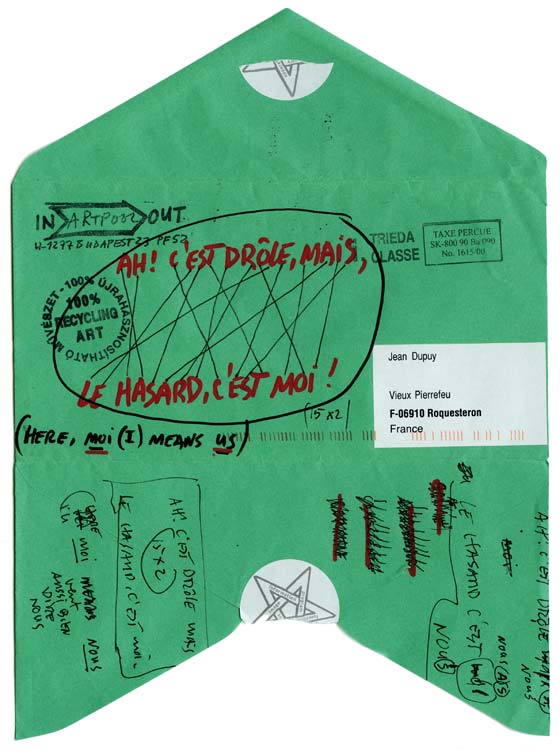 IN ARTPOOL OUT
H-1277 BUDAPEST 23 PF 52
TRIEDA
CLASSE
TAXE PERCUE
SK-800 90 Ba 090
No. 1615/00
AH! C'EST DRÔLE, MAIS,
100% ÚJRAHASZNOSÍTHATÓ MŰVÉSZET -
100%
RECYCLING
ART
LE HASARD, C'EST MOI!
(15x2)
(HERE, moi (I) MEANS US)
Jean Dupuy
Vieux Pierrefeu
F-06910 Roquesteron
France
AH! C'EST DRÔLE MAIS
15x2
LE HASARD, C'EST MOI.
MOI MEANS NOUS
VEUT
AUSSI BIEN
DIRE
NOUS
LE HASARD C'EST moi
NOUS
AH! C'EST DRÔLE
NOUS